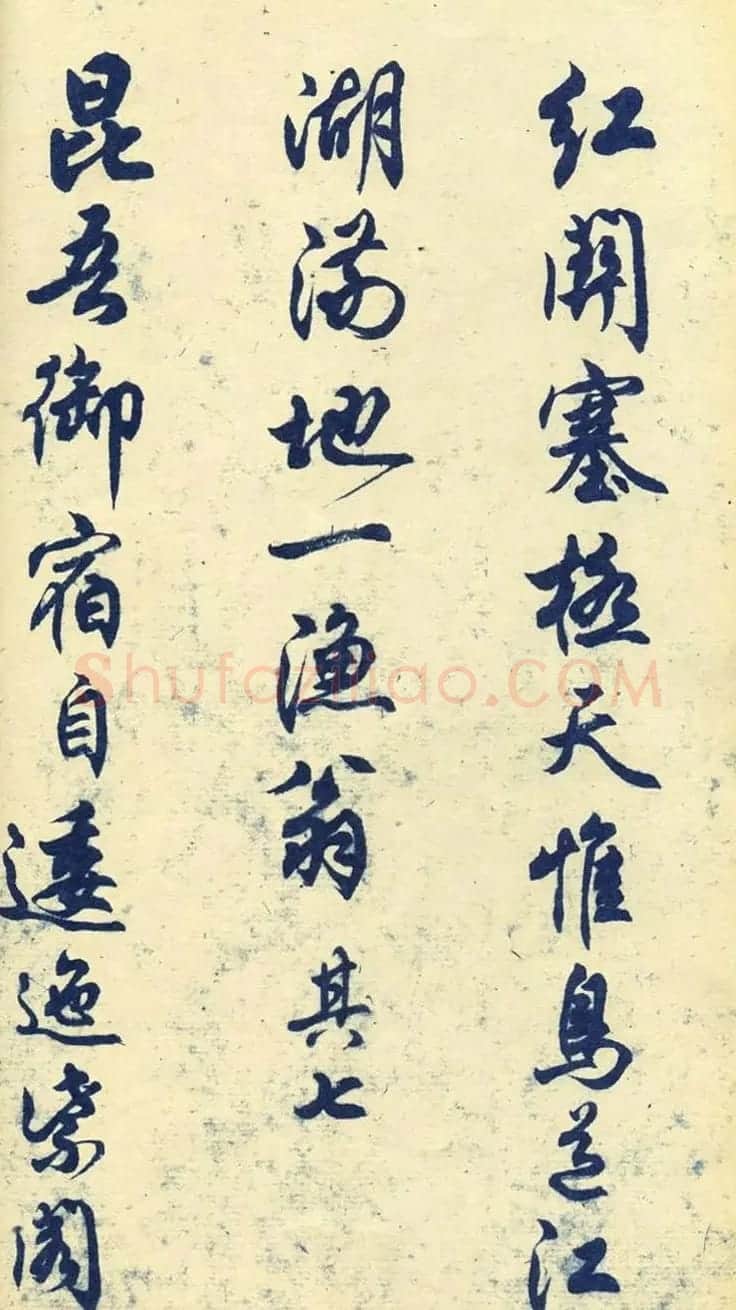 红關塞極天惟鳥道江
湖满地一漁翁其七
昆吾御宿自逶迤紫閣
Shufaziliao.COM